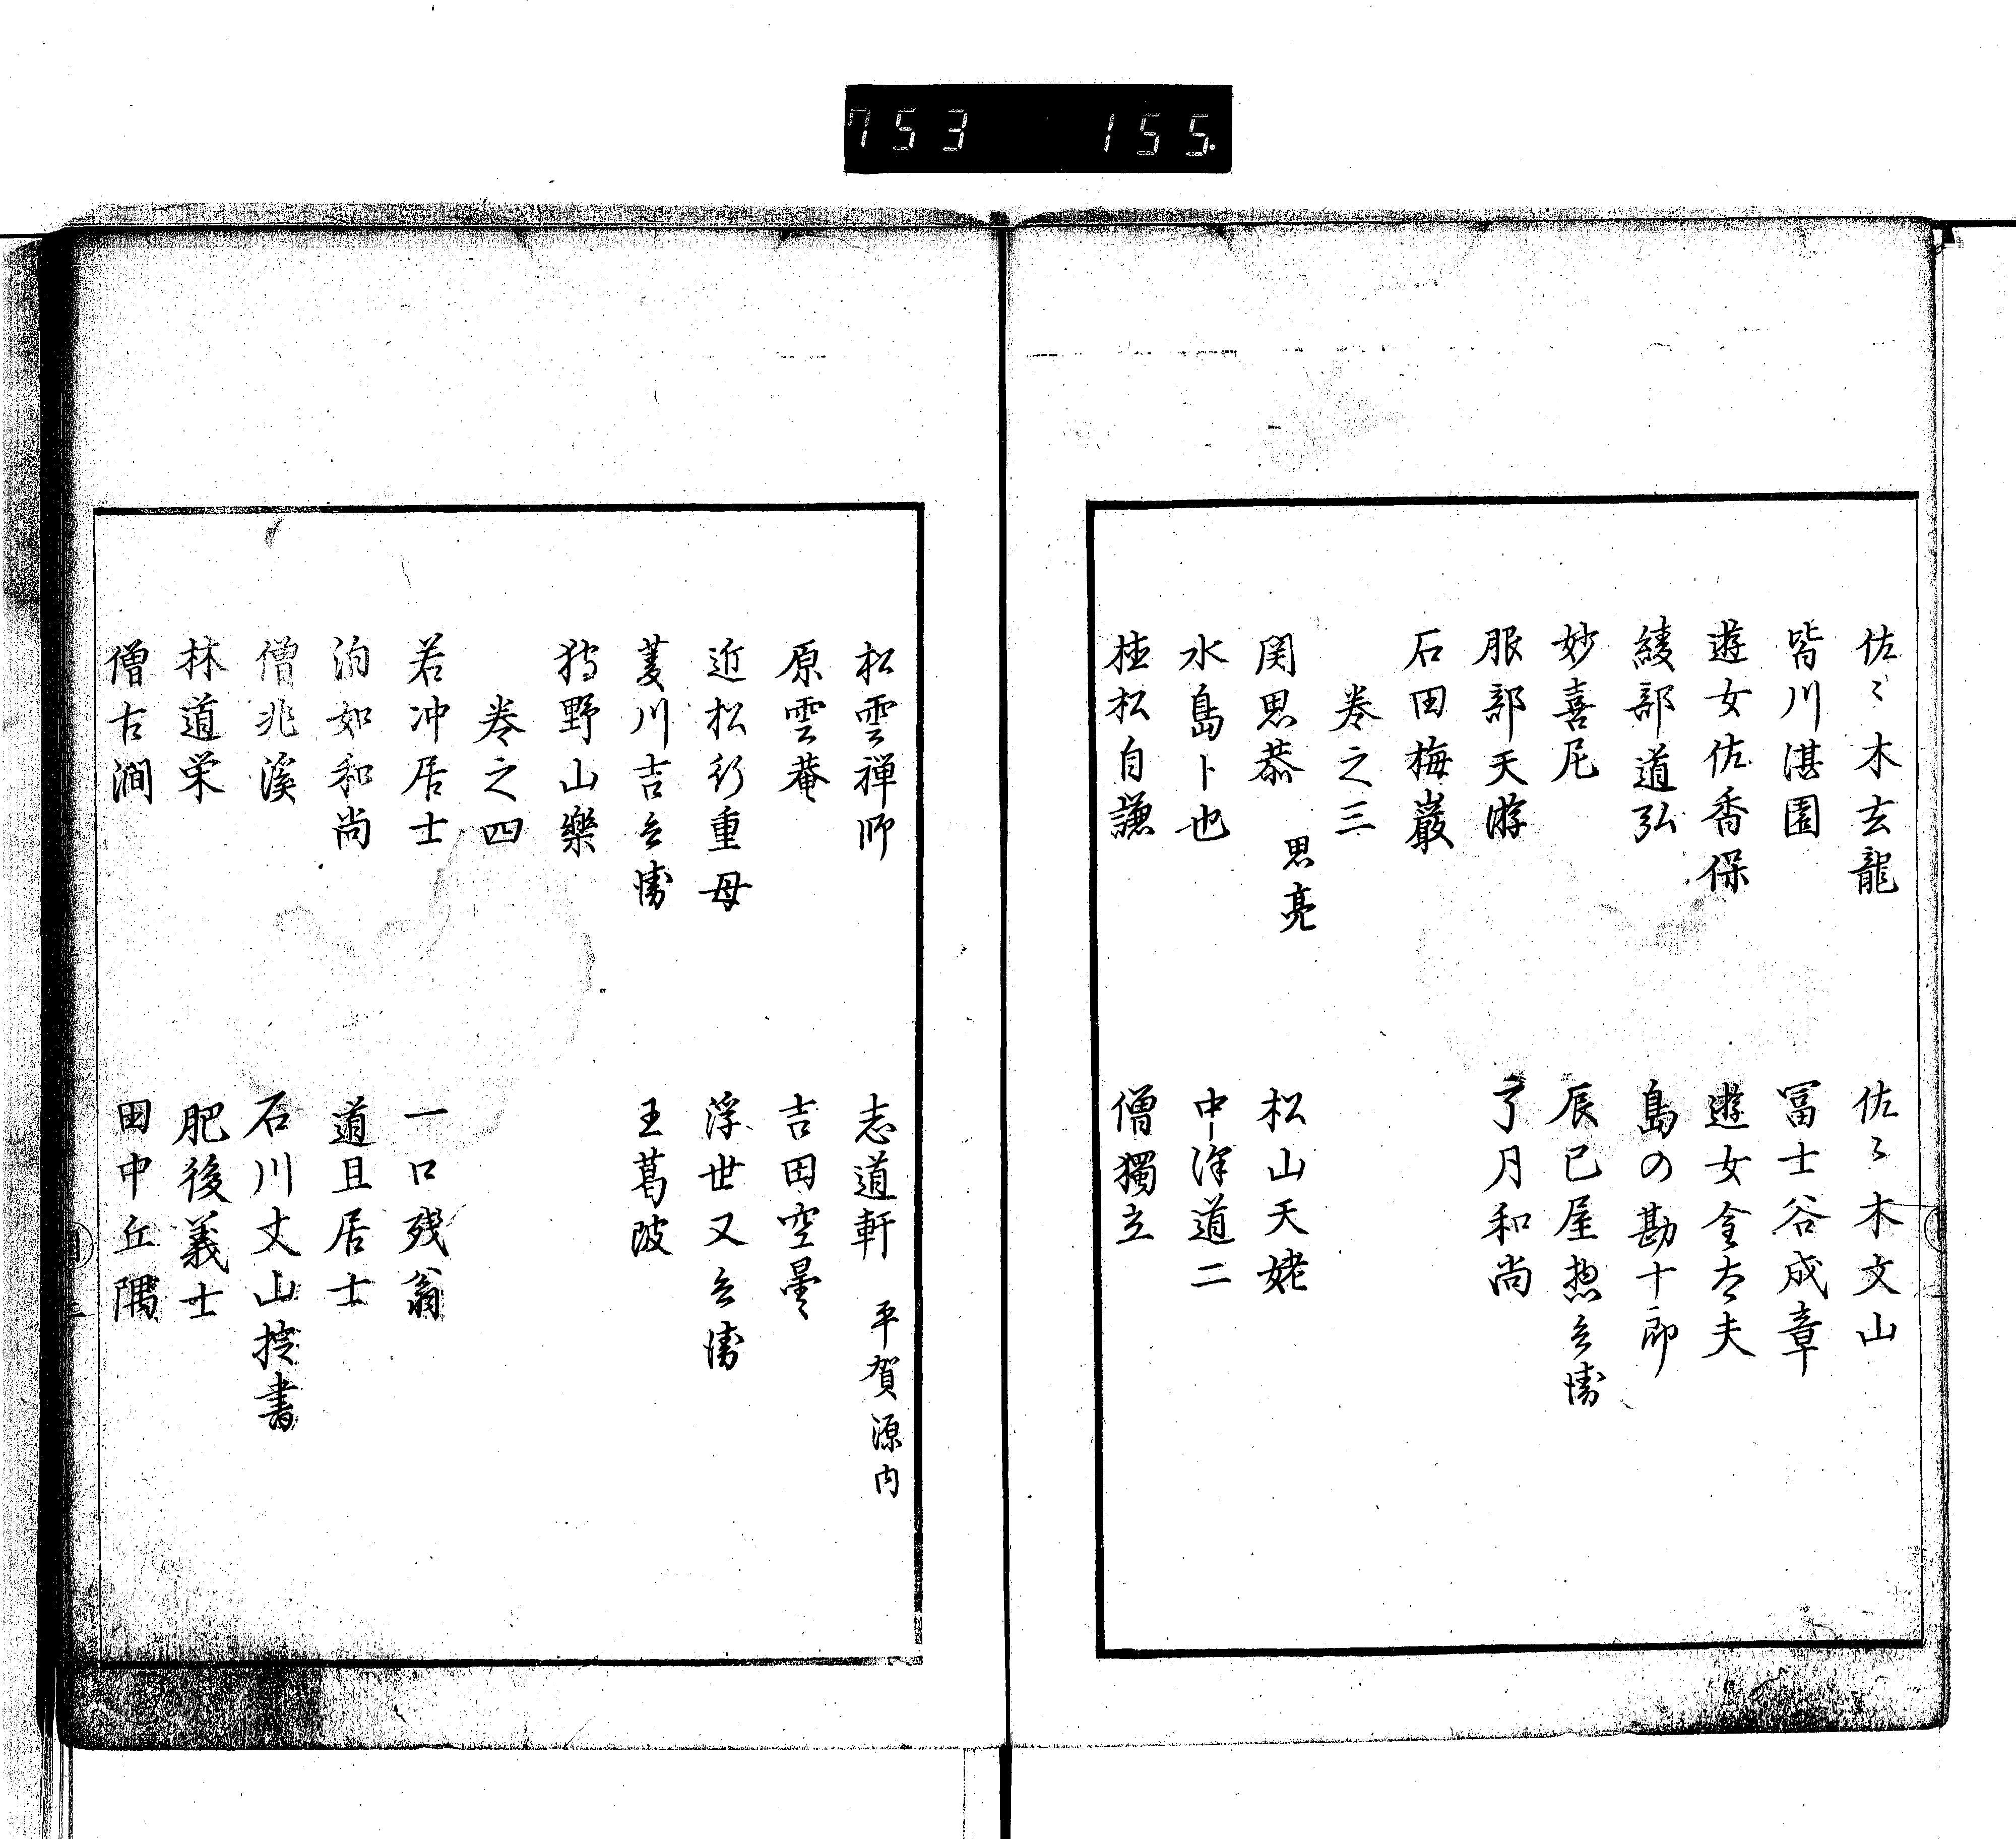 753 155.
佐〻木玄龍 佐〻木文山
皆川淇園 冨士谷成章
遊女佐香保 遊女金太夫
綾部道弘 島の勘十郎
妙喜尼 辰巳屋惣兵衛
服部天游 了月和尚
石田梅巖
巻之三
関思恭 思亮 松山天姥
水島卜也 中澤道二
植松自謙 僧獨立
松雲禅師 志道軒 平賀源内
原雲菴 吉田空曇
近松行重母 浮世又兵衛
菱川吉兵衛 王葛陂
狩野山樂
巻之四
若冲居士 一口残翁
泊如和尚 道且居士
僧兆溪 石川丈山掟書
林道栄 肥後義士
僧古澗 田中丘隅